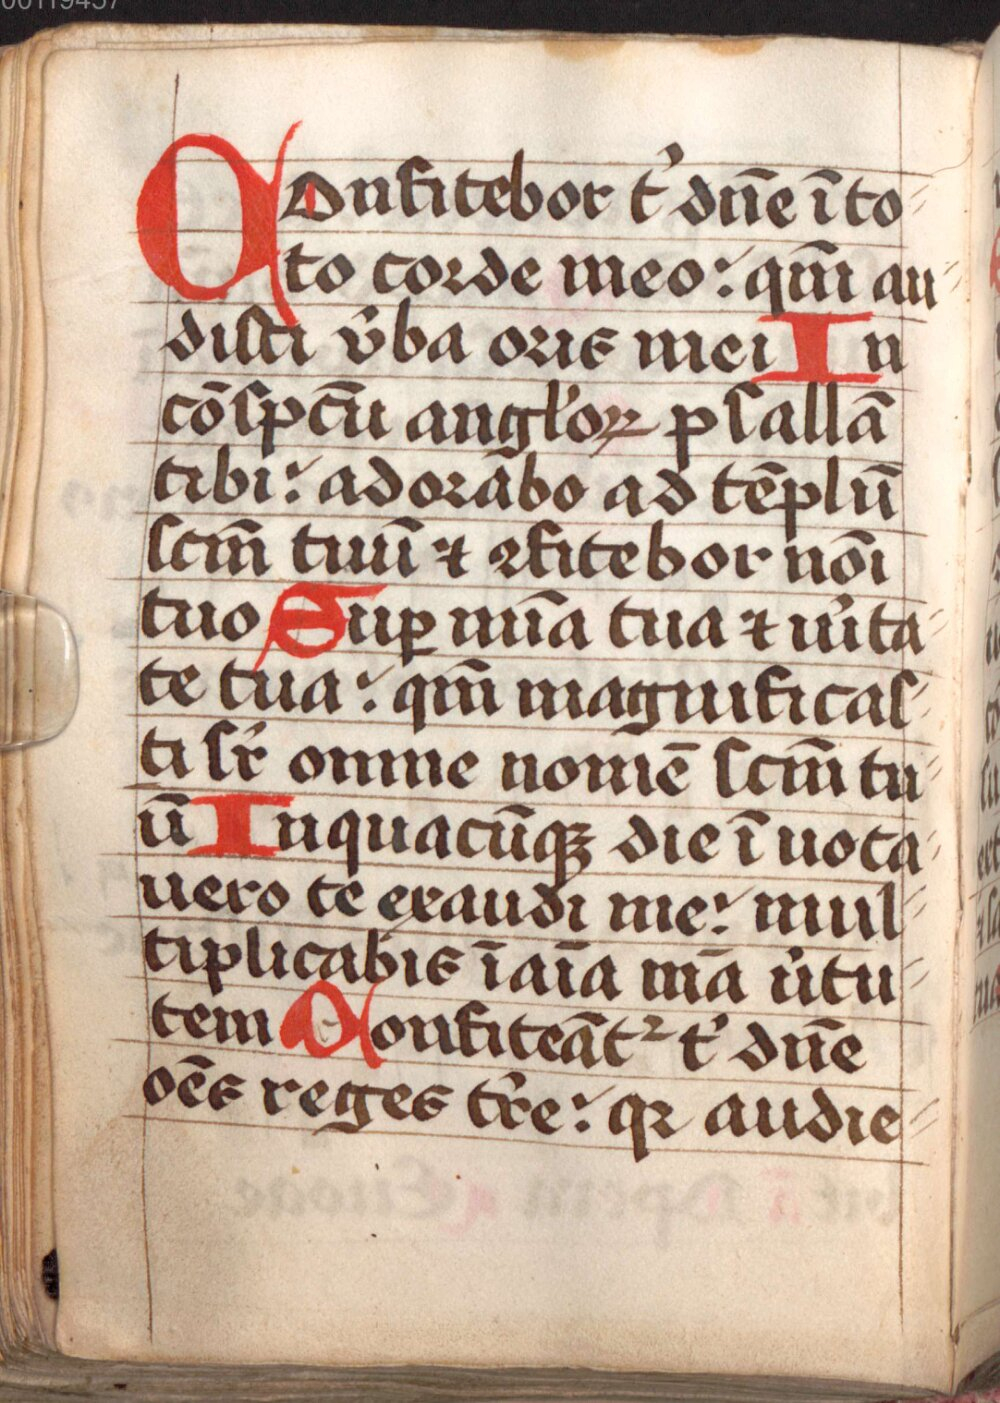 00119457
Confitebor t᷒ dn̄e ī to⸗
to corde meo: qm̄ au⸗
disti v̓ba oris mei In
cōspc̄tu angl̓oꝝ psallā
tibi: adorabo ad tēplū
scm̄ tuū ⁊ ꝯfitebor nōi
tuo Suꝑ mīa tua ⁊ v̓ita⸗
te tua: qm̄ magnificas⸗
ti sr̓ omne nomē scm̄ tu⸗
ū Inquacūqꝫ die īuoca⸗
uero te exaudi me: mul⸗
tiplicabis ī aīa mā v̓tu⸗
tem Confiteāt᷑ t᷒ dn̄e
oēs reges tr̓e: qꝛ audie⸗